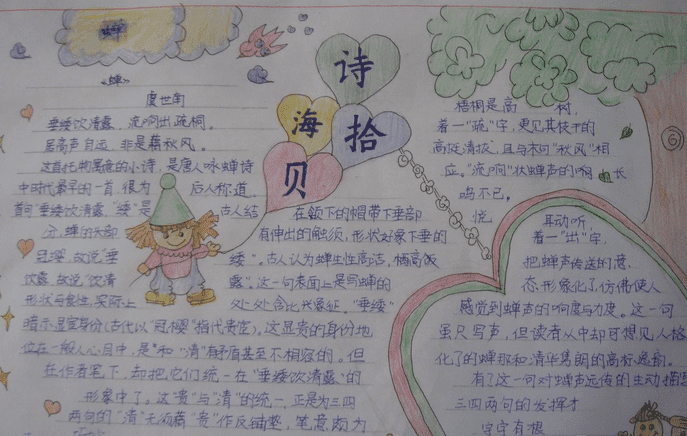 诗
海
拾
贝
《蝉》
虞世南
垂緌饮清露,流响出疏桐。
居高声自远,非是藉秋风。
这首托物寓意的小诗,是唐人咏蝉诗
中时代最早的一首,很为 后人称道
首句“垂緌饮清露,“緌”是 古人结
在颔下的帽带下垂部
分,蝉的头部 有伸出的触须,形状好象下垂的
且深,故说“垂 緌”。古人认为蝉生性高洁,栖高饮
饮露,故说“饮清 露”。这一句表面上是写蝉的
形状与食性,实际上 处处含比兴象征。“垂緌”
暗示显宦身份(古代以“冠缨”指代贵宦)。这显贵的身份地
位在一般人心目中,是“和“清”有矛盾甚至不相容的。但
在作者笔下,却把它们统一在“垂緌饮清露”的
形象中了。这“贵”与“清”的统一,正是为三四
两句的“清”无须藉“贵”作反铺垫,笔意颇为
梧桐是高 树,
着一“疏”字,更见其枝干的
高挺清拔,且与末句“秋风”相
应。“流响”状蝉声的 长
鸣不已。
悦 耳动听,
着一“出”字,
把蝉声传送的意
态形象化了,仿佛使人
感觉到蝉声的响度与力度。这一句
虽只写声,但读者从中却可想见人格
化了的蝉那和清华隽朗的高标逸韵。
有了这一句对蝉声远传的生动描
三四两句的发挥才
字字有根